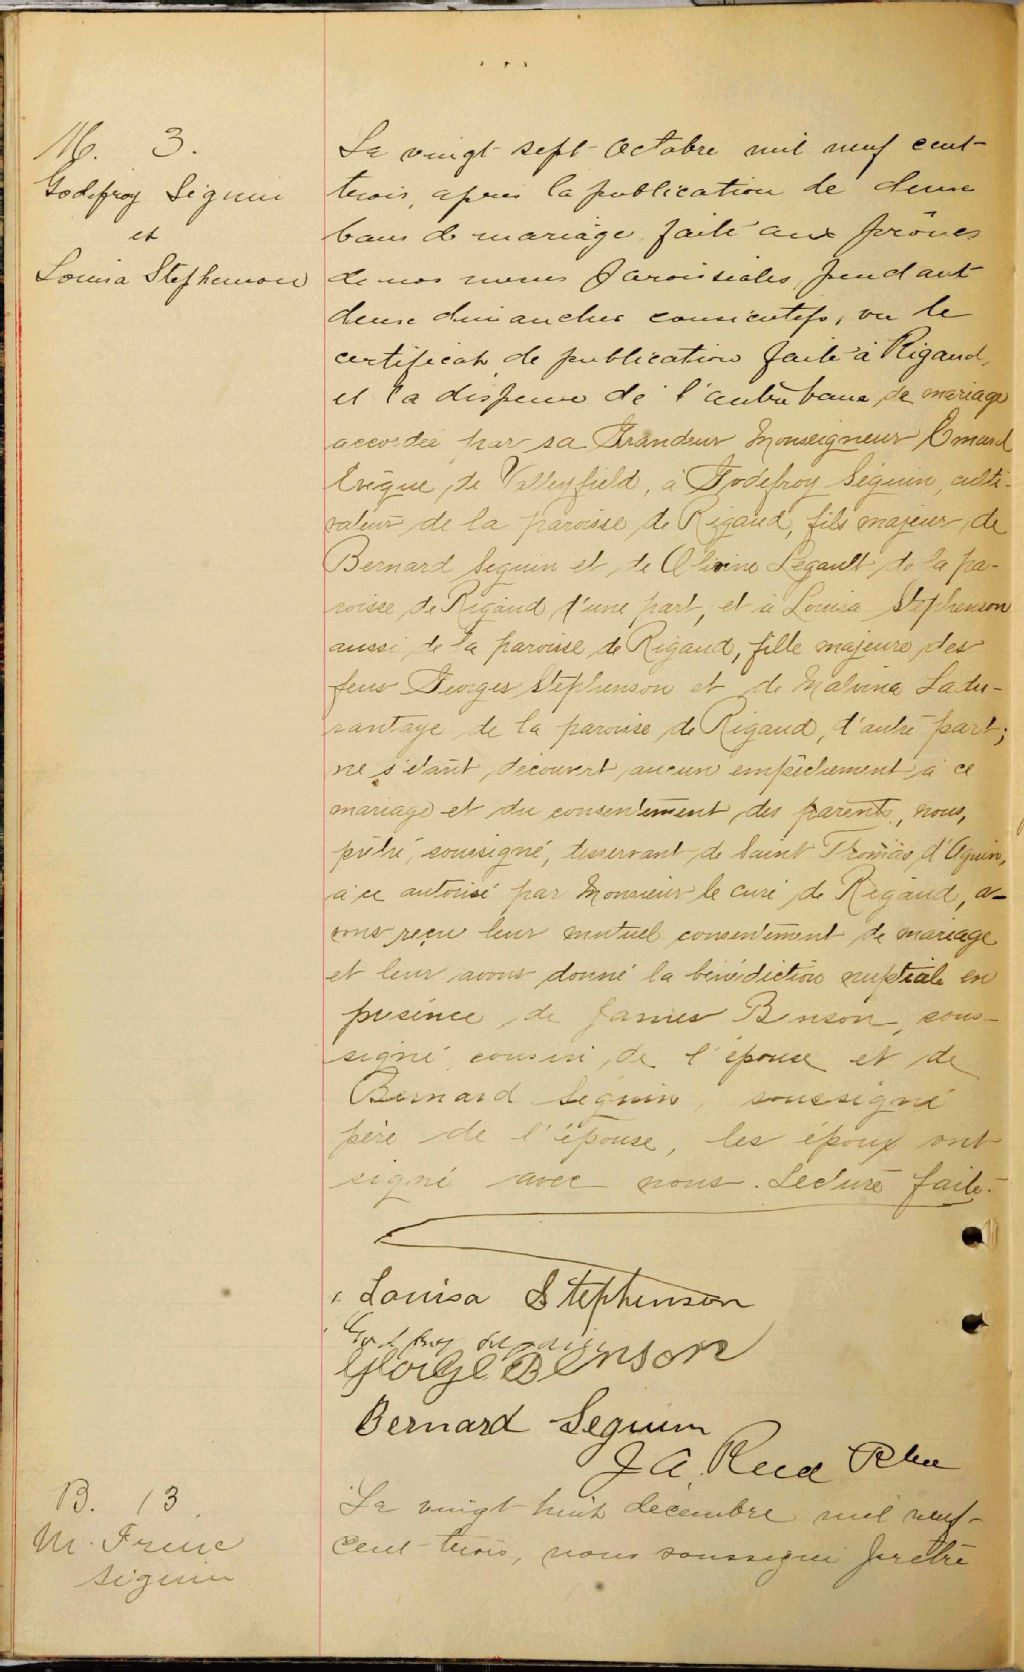 M. 3.
Godefroy Séguin
et
Louisa Stephenson
Le vingt sept Octobre mil neuf cent
trois, après la publication de deux
bans de mariage faite aux prônes
de nos messes paroissiales pendant
deux dimanches consécutifs, vu le
certificat de publication faite à Rigaud,
et la dispense de l'autre banc de mariage
accordée par sa Grandeur Monseigneur Emard
Evêque de Valleyfield, à Godefroy Séguin, culti-
vateur de la paroisse de Rigaud, fils majeur de
Bernard Séguin et de Olivine Legault de la pa-
roisse de Rigaud d'une part, et à Louisa Stephenson
aussi de la paroisse de Rigaud, fille majeure des
feus Georges Stephenson et de Malvina Ladu-
rantaye de la paroisse de Rigaud, d'autre part;
ne s'étant découvert aucun empêchement à ce
mariage et du consentement des parents, nous,
prêtre, soussigné, desservant de Saint Thomas d'Aquin,
à ce autorisé par Monsieur le curé de Rigaud, a-
vons reçu leur mutuel consentement de mariage
et leur avons donné la bénédiction nuptiale en
présence de James Benson, sous-
signé cousin de l'épouse et de
Bernard Séguin, soussigné
père de l'épouse, les époux ont
signé avec nous. Lecture faite.
Louisa Stephenson
Godfroy Seguin
George Benson
Bernard Seguin
J A. Ptre
B. 13
M. Irene
Séguin
Le vingt huit décembre mil neuf-
cent-trois, nous soussigné prêtre